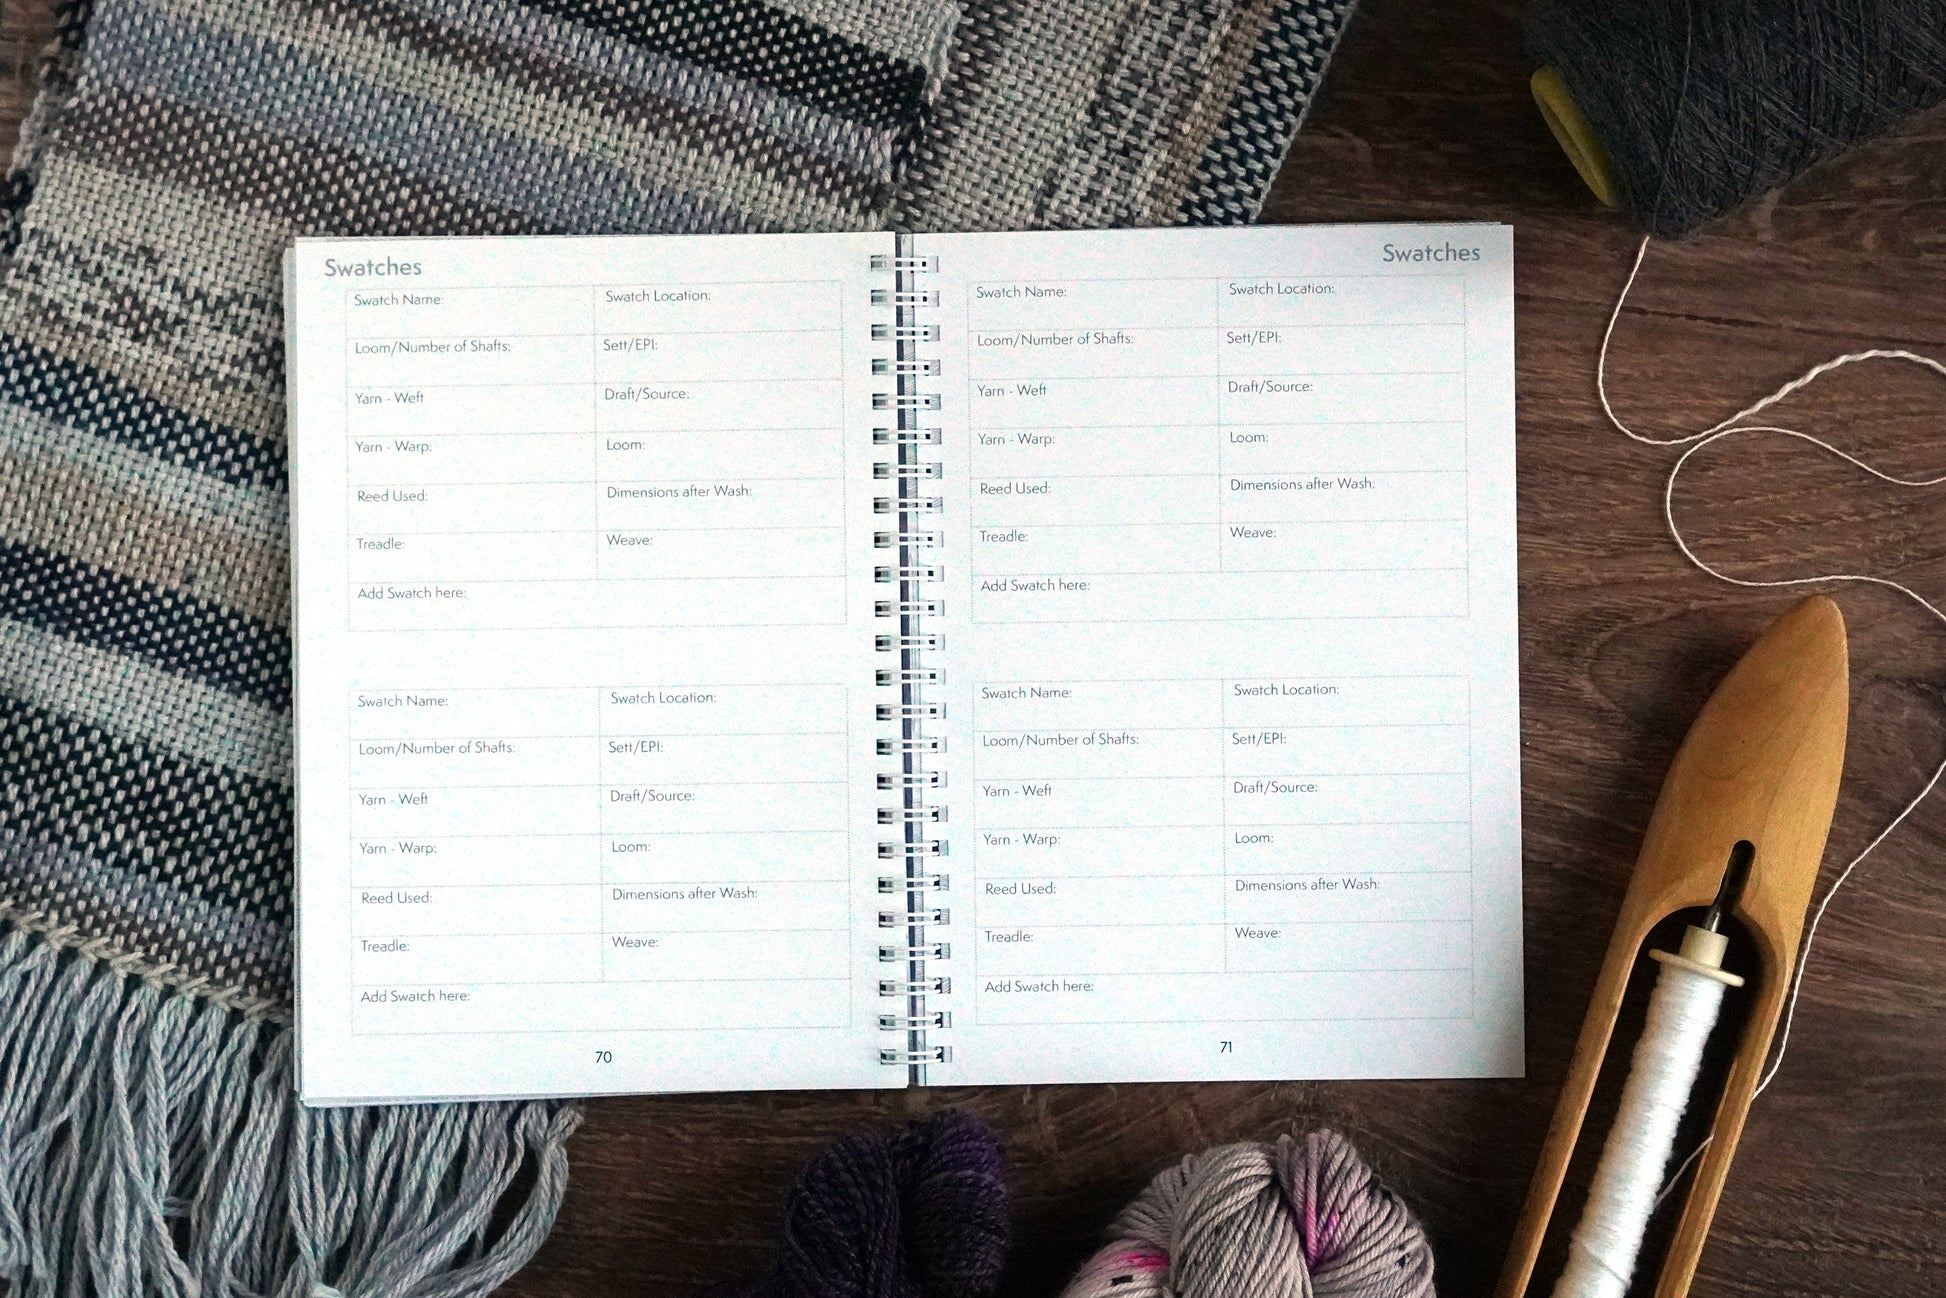 Swatches
Swatch Name: Swatch Location:
Loom/Number of Shafts: Sett/EPI:
Yarn - Weft Draft/Source:
Yarn - Warp: Loom:
Reed Used: Dimensions after Wash:
Treadle: Weave:
Add Swatch here:
Swatch Name: Swatch Location:
Loom/Number of Shafts: Sett/EPI:
Yarn - Weft Draft/Source:
Yarn - Warp: Loom:
Reed Used: Dimensions after Wash:
Treadle: Weave:
Add Swatch here:
70
Swatches
Swatch Name: Swatch Location:
Loom/Number of Shafts: Sett/EPI:
Yarn - Weft Draft/Source:
Yarn - Warp: Loom:
Reed Used: Dimensions after Wash:
Treadle: Weave:
Add Swatch here:
Swatch Name: Swatch Location:
Loom/Number of Shafts: Sett/EPI:
Yarn - Weft Draft/Source:
Yarn - Warp: Loom:
Reed Used: Dimensions after Wash:
Treadle: Weave:
Add Swatch here:
71